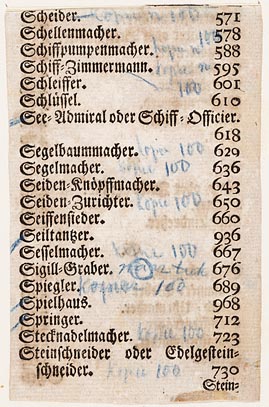 Scheider. 571
Schellenmacher. 578
Schiffpumpenmacher. 588
Schiff-Zimmermann. 595
Schleiffer. 601
100
Schlüssel. 610
See-Admiral oder Schiff-Officier.
618
Segelbaummacher. Kopie 100 629
Segelmacher. Kopie 100 636
Seiden-Knöpffmacher. 643
Seiden-Zurichter. Kopie 100 650
Seiffensieder. 660
Seiltantzer. 936
Sesselmacher. Kopie 100 667
Sigill-Graber. 676
Spiegler. Kopie 100 689
Spielhaus. 968
Springer. 712
Stecknadelmacher. Kopie 100 723
Steinschneider oder Edelgestein-
schneider. Kopie 100 730
Stein-